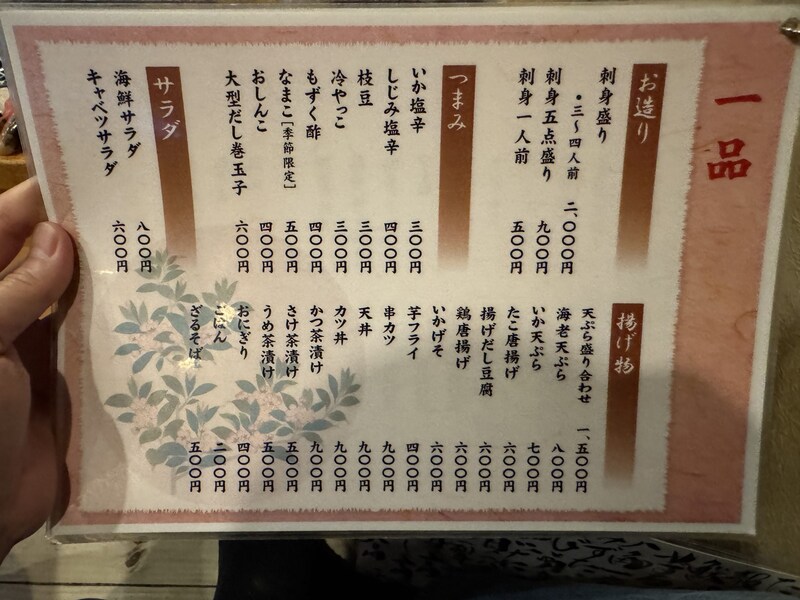 一品
お造り
刺身盛り
・三〜四人前 二、〇〇〇円
刺身五点盛り 九〇〇円
刺身一人前 五〇〇円
つまみ
いか塩辛 三〇〇円
しじみ塩辛 四〇〇円
枝豆 三〇〇円
冷やっこ 三〇〇円
もずく酢 四〇〇円
なまこ[季節限定] 五〇〇円
おしんこ 四〇〇円
大型だし巻玉子 六〇〇円
サラダ
海鮮サラダ 八〇〇円
キャベツサラダ 六〇〇円
揚げ物
天ぷら盛り合わせ 一、五〇〇円
海老天ぷら 八〇〇円
いか天ぷら 七〇〇円
たこ唐揚げ 六〇〇円
揚げだし豆腐 六〇〇円
鶏唐揚げ 六〇〇円
いかげそ 六〇〇円
芋フライ 四〇〇円
串カツ 九〇〇円
天丼 九〇〇円
カツ丼 九〇〇円
かつ茶漬け 九〇〇円
さけ茶漬け 五〇〇円
うめ茶漬け 五〇〇円
おにぎり 四〇〇円
ごはん 二〇〇円
ざるそば 五〇〇円